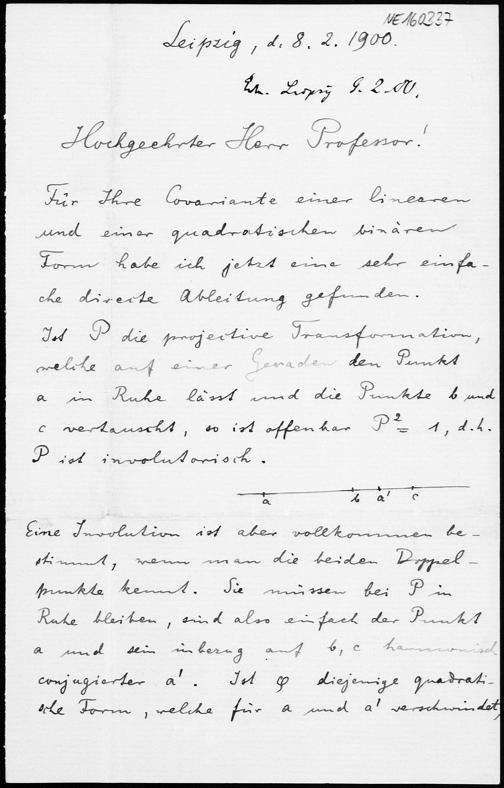 NE160337
Leipzig, d. 8. 2. 1900.
Leipzig 9. 2. 00.
Hochgeehrter Herr Professor!
Für Ihre Covariante einer linearen
und einer quadratischen binären
Form habe ich jetzt eine sehr einfa-
che directe Ableitung gefunden.
Ist P die projective Transformation,
welche auf einer Geraden den Punkt
a in Ruhe lässt und die Punkte b und
c vertauscht, so ist offenbar P² = 1, d.h.
P ist involutorisch.
a b a' c
Eine Involution ist aber vollkommen be-
stimmt, wenn man die beiden Doppel-
punkte kennt. Sie müssen bei P in
Ruhe bleiben, sind also einfach der Punkt
a und sein inbezug auf b, c harmonisch
conjugierter a'. Ist φ diejenige quadrati-
sche Form, welche für a und a' verschwindet,